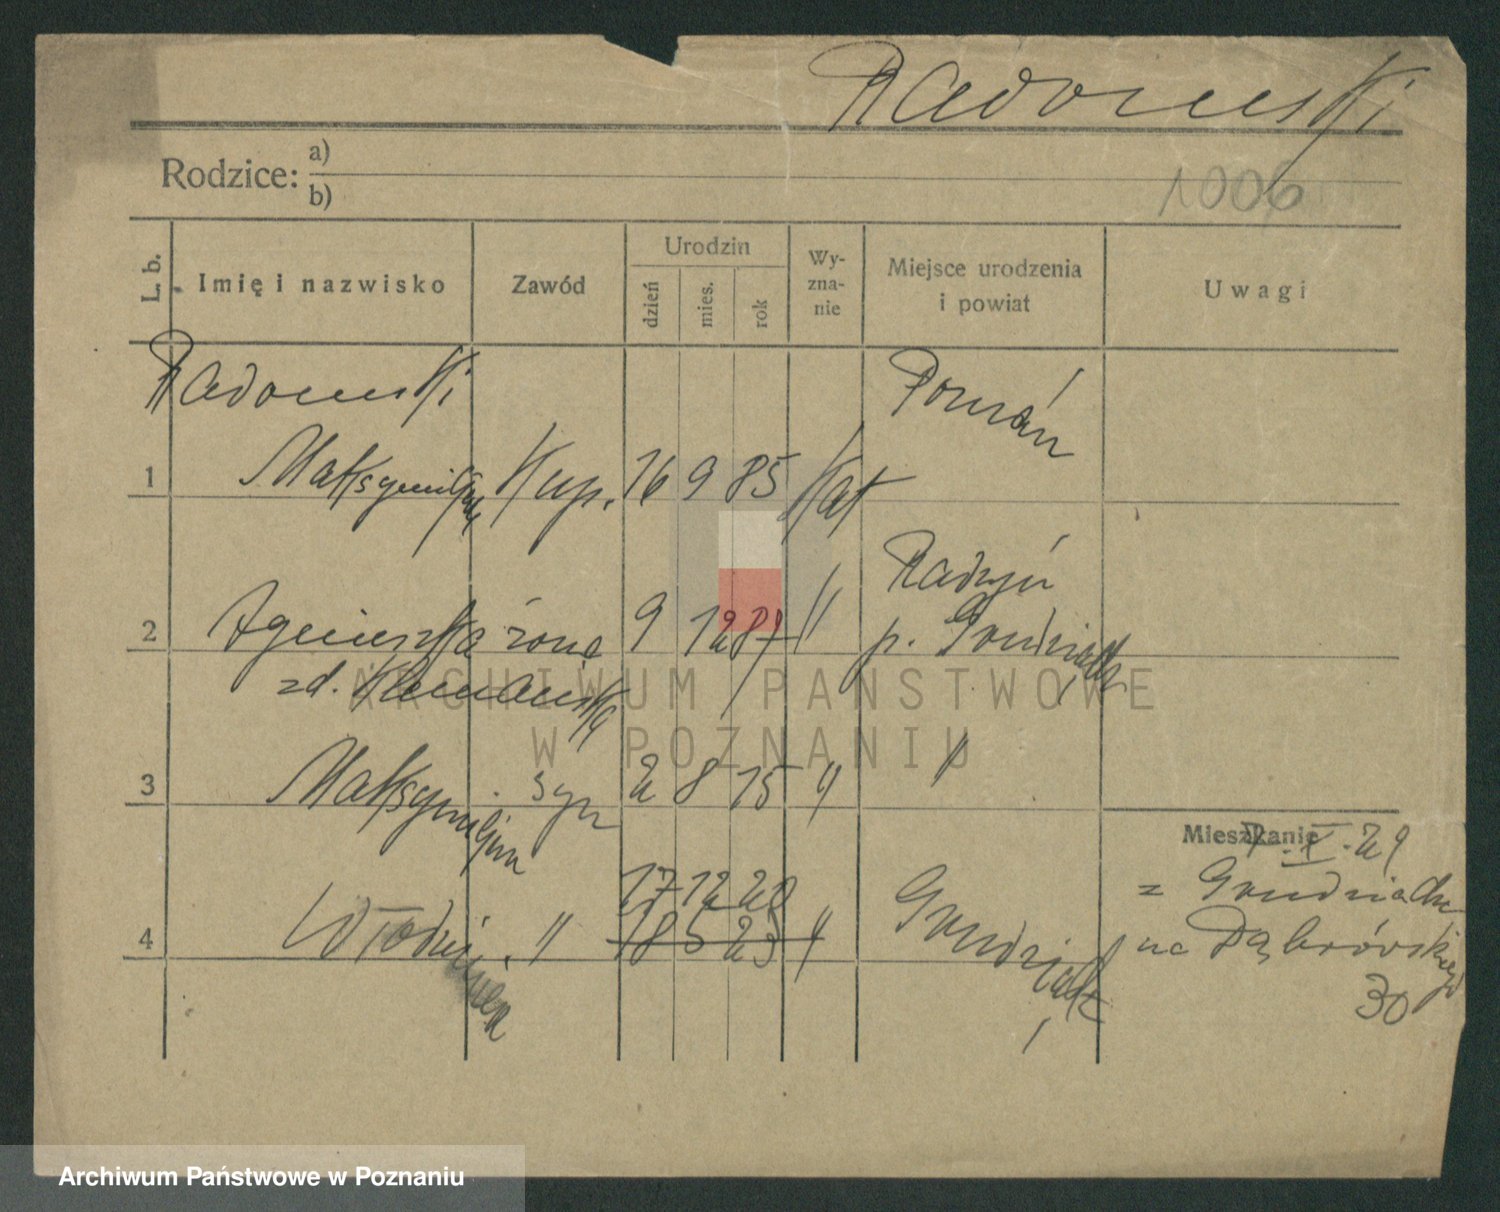 Radomski
Rodzice: a)
b)
1006
L. b.
Imię i nazwisko
Zawód
Urodzin
dzień
mies.
rok
Wy-
zna-
nie
Miejsce urodzenia
i powiat
Uwagi
Radomski
Poznań
1 Maksymiljan Kup. 16 9 85 Kat
Radzyń
2 Agnieszka żona 9 12 87 "
p. Grudziądz
zd.
3 Maksymiljan syn 2 8 15 " "
Mieszkanie
z Grudziądza
17 12 20
4 Włodzimierz " 18 5 23 " Grudziądz
na Dąbrówskiego
30
ARCHIWUM PAŃSTWOWE
W POZNANIU
Archiwum Państwowe w Poznaniu